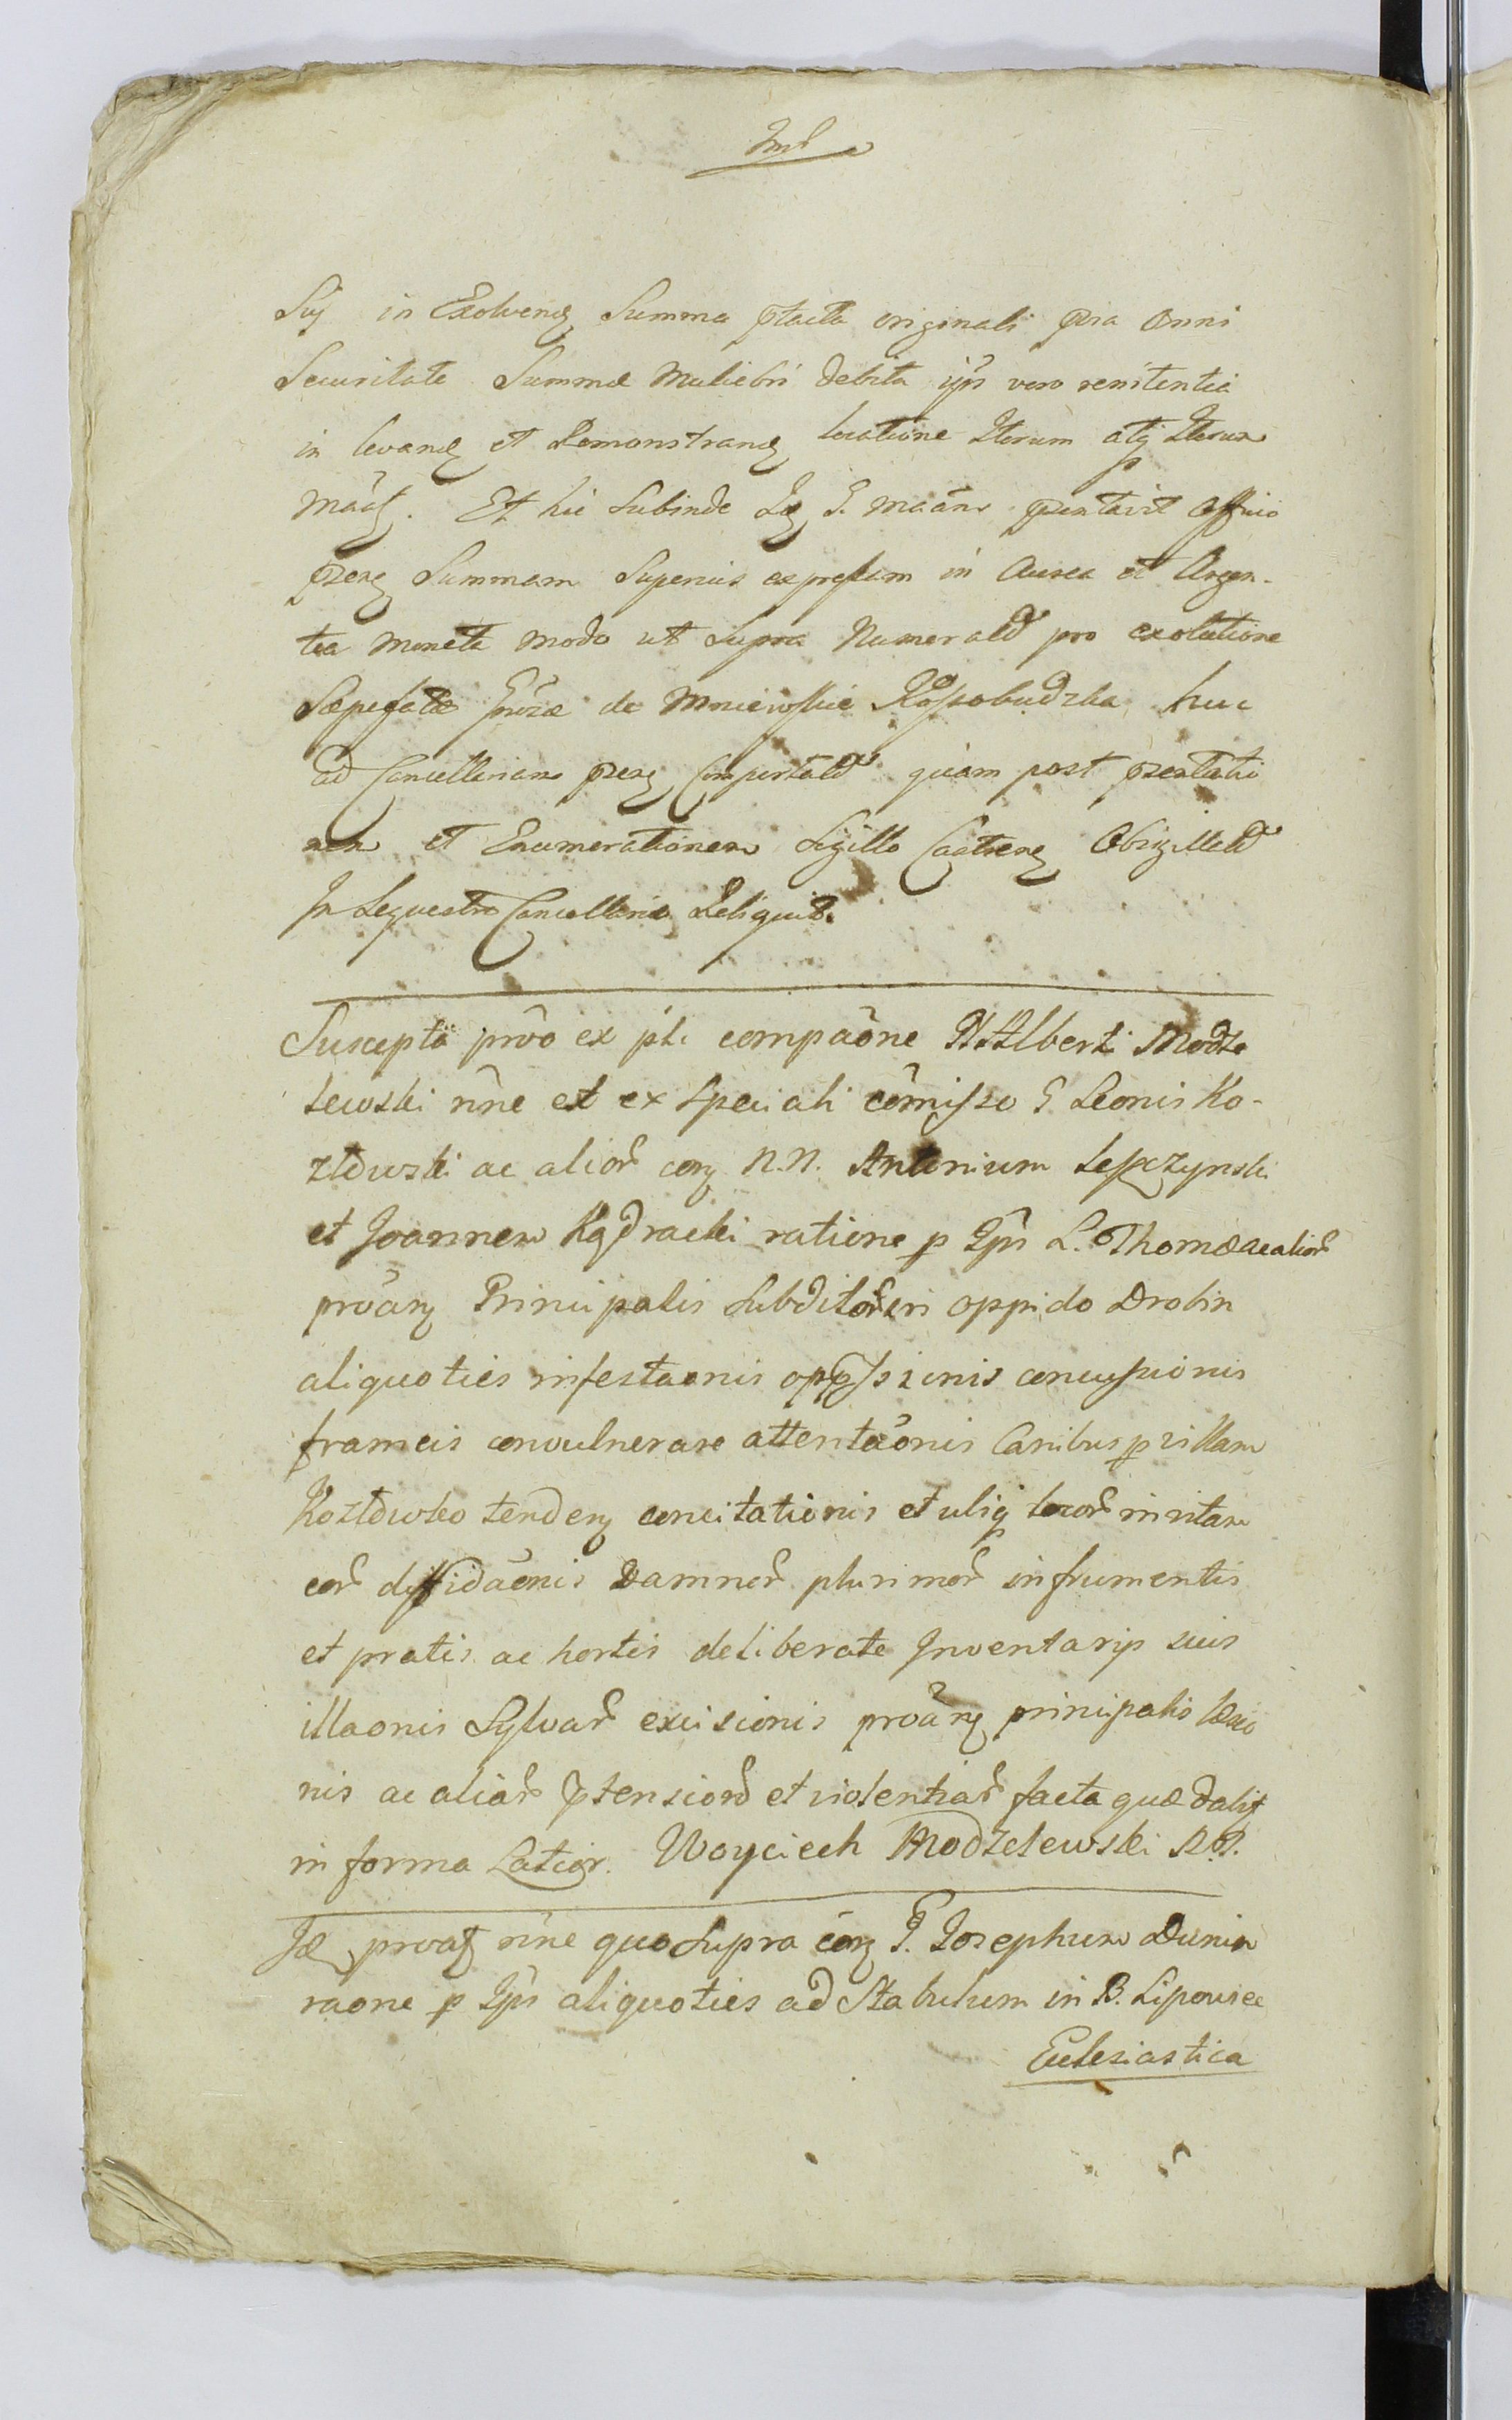 Sui in Exolvend Summa ptacta originali pia omni
Securitate Summæ Muliebri debita ips vero renitentia
in levand et Demonstrand locatione Iterum atq Iterum
Et hic Subinde G. officio
pzens Summam Superius expressam in Aurea et Argen-
tea Moneta modo ut Supra Numerald pro exolutione
Sæpefatæ de Mniewskie huc
ad Cancellariam pzens Comportald quam post pzentatio
nem et Enumerationem Sigillo Castrens Obsigillald
In Sequestro Cancellariæ Reliquit.
Suscepta prõo ex comparõne Alberti Modze
lewski nñe et ex speciali cõmisso G Leonis Ko-
złowski ac alior con N.N. Antonium Lepczynski
et Joannem Kędracki ratione p Ips L. Thomæ ac alior
proãn Principalis Subditor in oppido Drobin
aliquoties infestaonis oppssionis concussionis
frameis convulnerare attentaõnis Canibus p villam
Kozłowko tenden concitationis et ubiq locor in vitam
eor diffidaõnis Damnor plurimor in frumentis
et pratis ac hortis deliberate Inventarijs suis
illaonis Sylvar excisionis proãn principalis læsio
nis ac aliar ptension et violentiar facta quæ
in forma Latior. Woyciech Modzelewski
Id nñe quo Supra con G. Josephum Dunin
raone p Ips aliquoties ad Stabulum in B. Lipowiec
Ecclesiastica